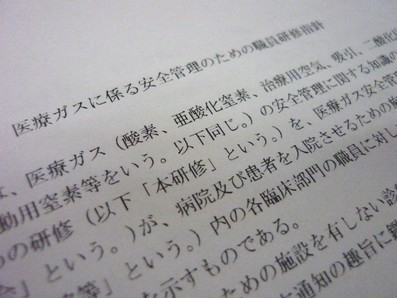 医療ガスに係る安全管理のための職員研修指針
は、医療ガス(酸素、亜酸化窒素、治療用空気、吸引、二酸化
動用窒素等をいう。以下同じ。)の安全管理に関する知識の
めの研修(以下「本研修」という。)を、医療ガス安全管
会」という。)が、病院及び患者を入院させるための施
等」という。)内の各臨床部門の職員に対し
を示すものである。
ための施設を有しない診
本通知の趣旨に鑑